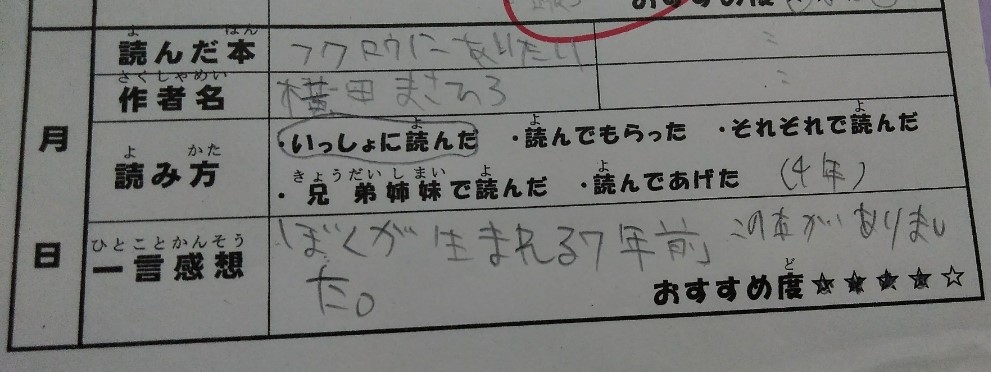 おすすめ度
月
日
読んだ本 フクロウにあいたい
作者名 横田まさひろ
読み方 ・いっしょに読んだ ・読んでもらった ・それぞれで読んだ
・兄弟姉妹で読んだ ・読んであげた (4年)
一言感想 ぼくが生まれる7年前この本がありまし
た。
おすすめ度★★★★☆